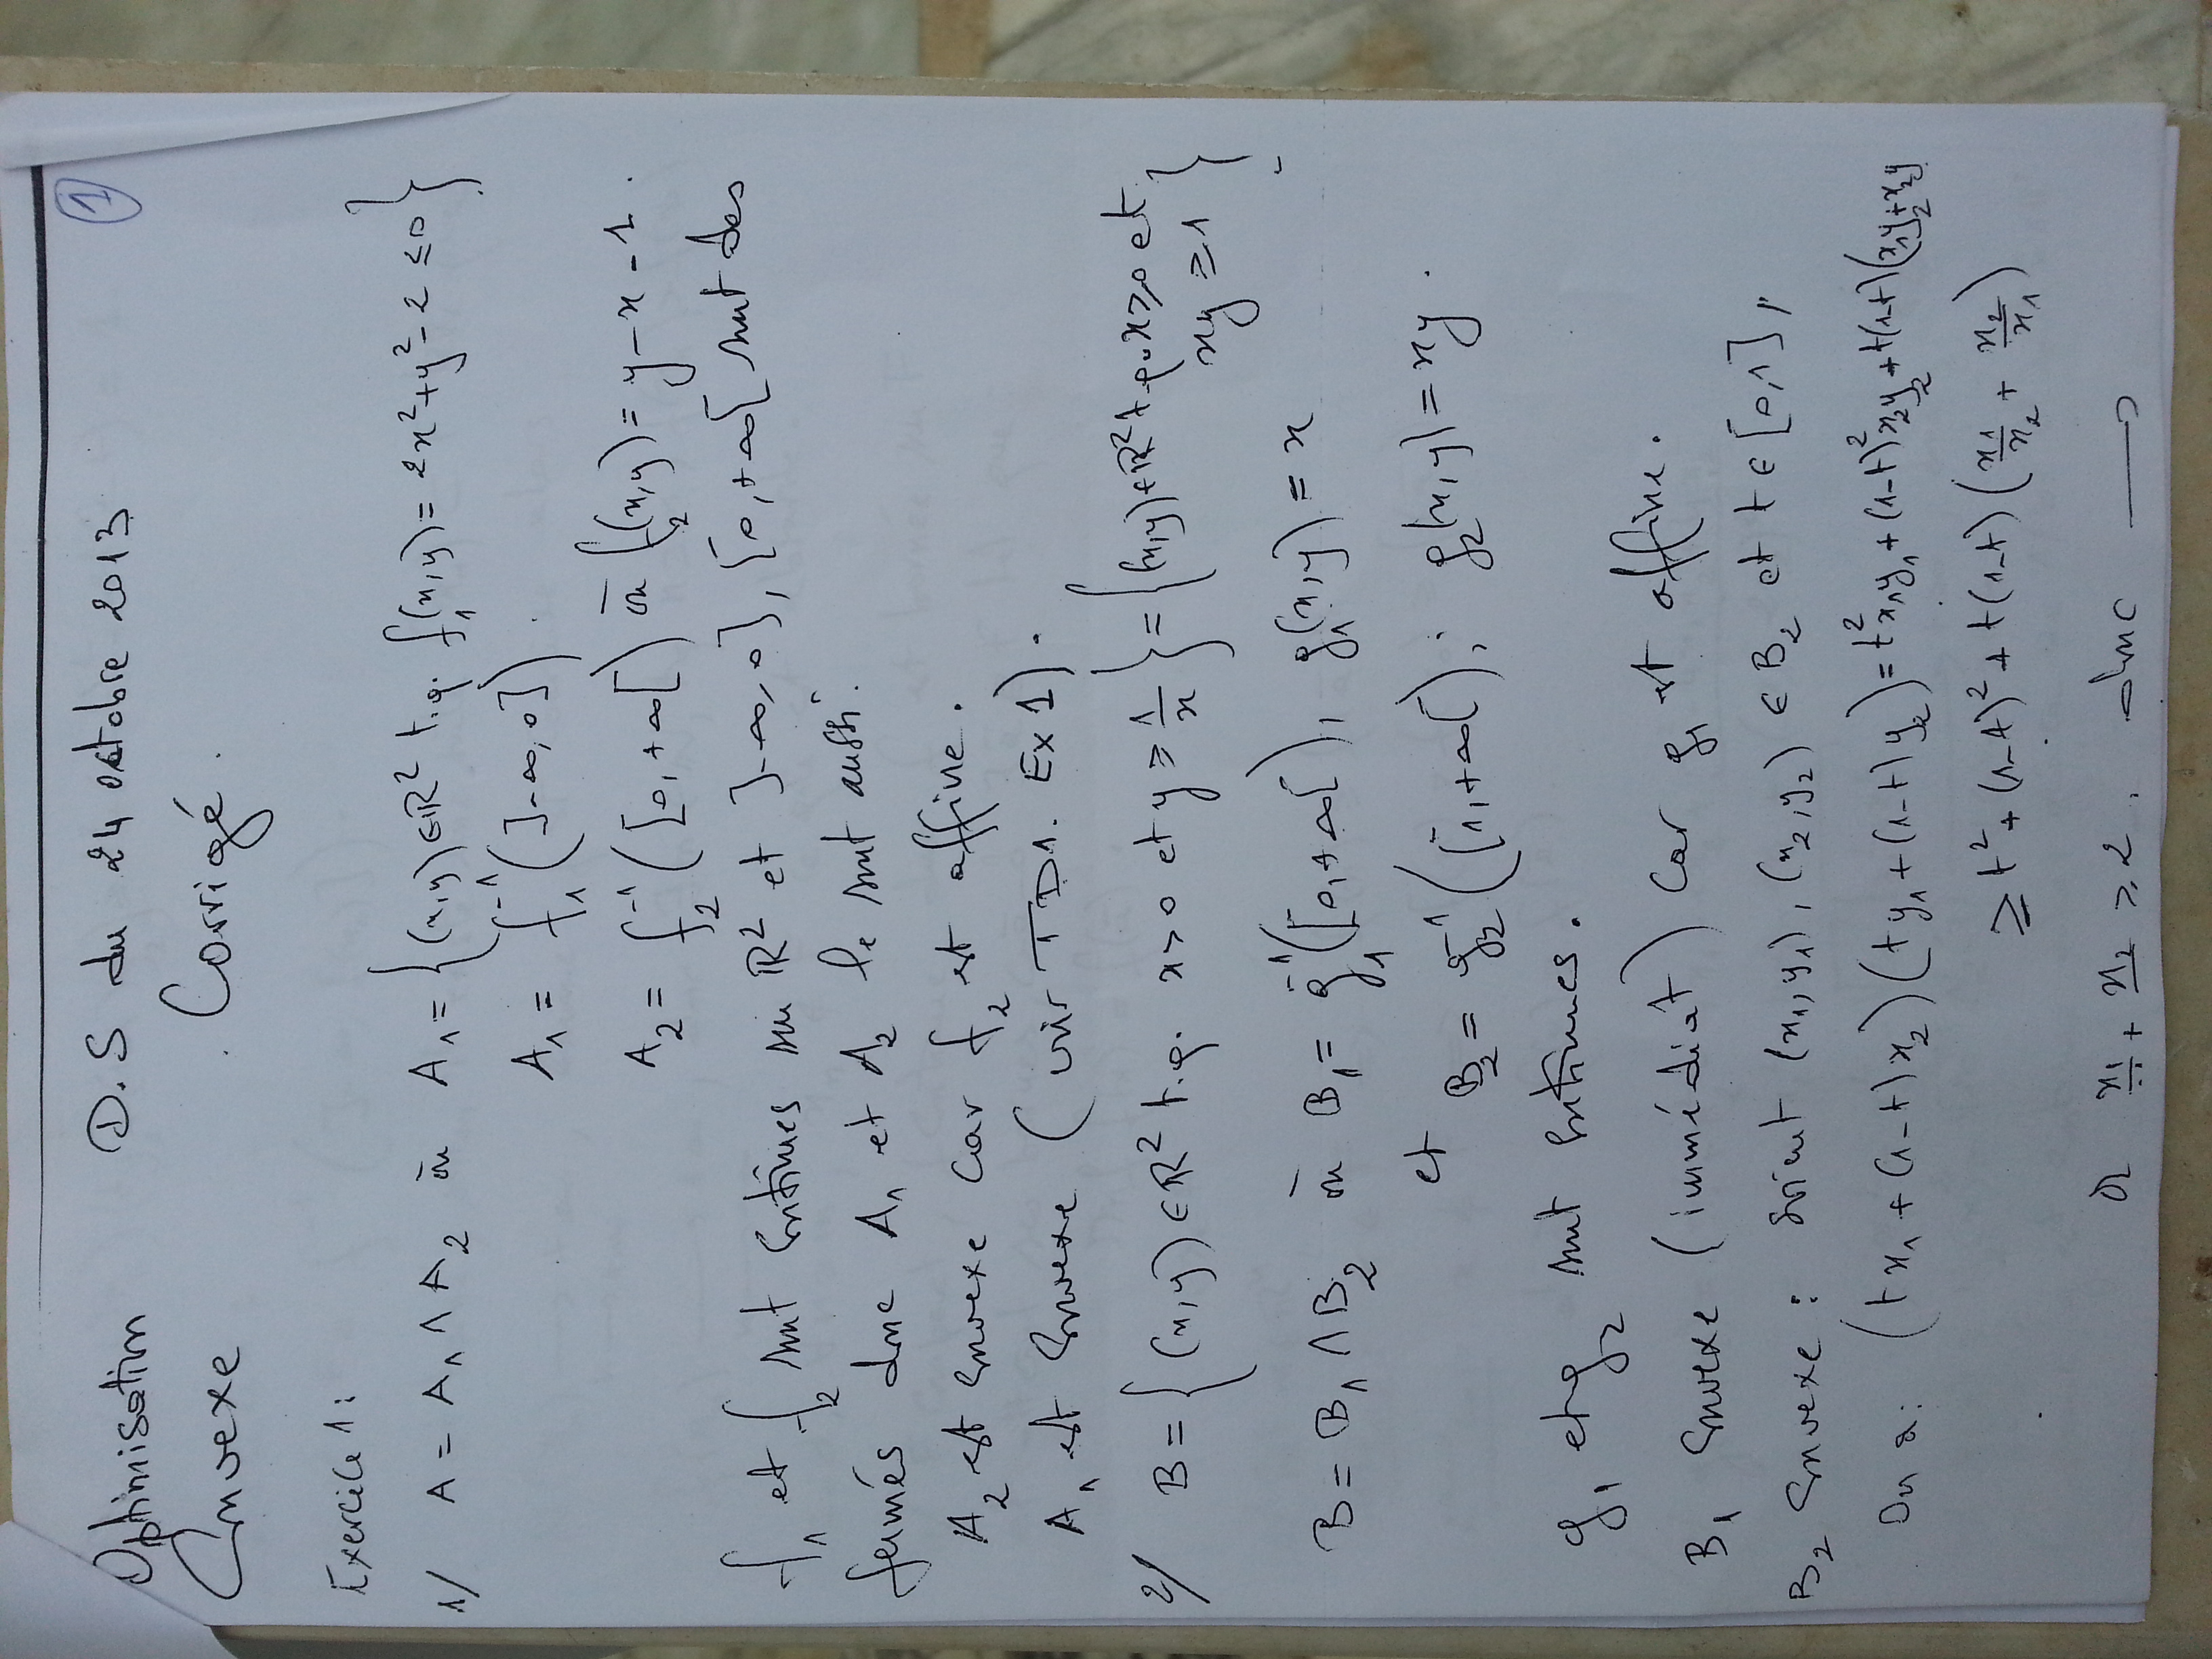 Optimisation D.S du 24 octobre 2013 1
Convexe Corrigé.
Exercice 1:
1/ A = A₁ ∩ A₂ où A₁ = {(x,y) ∈ ℝ² t.q. f₁(x,y) = 2x² + y² - 2 ≤ 0}
A₁ = f₁⁻¹(]-∞, 0]).
A₂ = f₂⁻¹([0, +∞[) où f₂(x,y) = y - x - 1.
f₁ et f₂ sont continues sur ℝ² et ]-∞, 0], [0, +∞[ sont des
fermés donc A₁ et A₂ le sont aussi.
A₂ est convexe car f₂ est affine.
A₁ est convexe (voir TD1. Ex 1).
2/ B = {(x,y) ∈ ℝ² t.q. x > 0 et y ≥ 1/x} = {(x,y) ∈ ℝ² t.q. x ≥ 0 et
xy ≥ 1}
B = B₁ ∩ B₂ où B₁ = g₁⁻¹([0, +∞[), g₁(x,y) = x
et B₂ = g₂⁻¹([1, +∞[); g₂(x,y) = xy.
g₁ et g₂ sont continues.
B₁ convexe (immédiat) car g₁ est affine.
B₂ convexe : soient (x₁,y₁), (x₂,y₂) ∈ B₂ et t ∈ [0,1],
On a: (tx₁ + (1-t)x₂)(ty₁ + (1-t)y₂) = t²x₁y₁ + (1-t)²x₂y₂ + t(1-t)(x₁y₂ + x₂y
≥ t² + (1-t)² + t(1-t)(x₁/x₂ + x₂/x₁)
or x₁/x₂ + x₂/x₁ ≥ 2. donc →